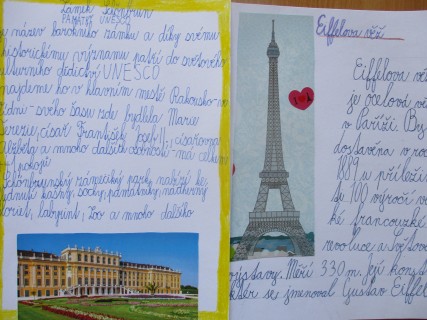 Zámek Schönbrun
PAMÁTKY UNESCO
název barokního zámku a díky svému
historickému významu patří do světového
kulturního dědictví UNESCO
najdeme ho v hlavním městě Rakousko-v
ídni - svého času zde bydlela Marie
Terezie, císař František Josef II., císařovna
Alžběta a mnoho dalších osobností - má celkem
pokojů
Schönbrunský zámecký park nabízí ke
kašny, sochy, památníky, nádherný
labyrint, Zoo a mnoho dalšího
Eiffelova věž
Eiffelova vě
je ocelová vě
v Paříži. By
dostavěna v ro
1889 u příleži
ti 100. výročí v
ké francouzské
revoluce a světov
výstavy. Měří 330 m. Její konst
se jmenoval Gustav Eiffel